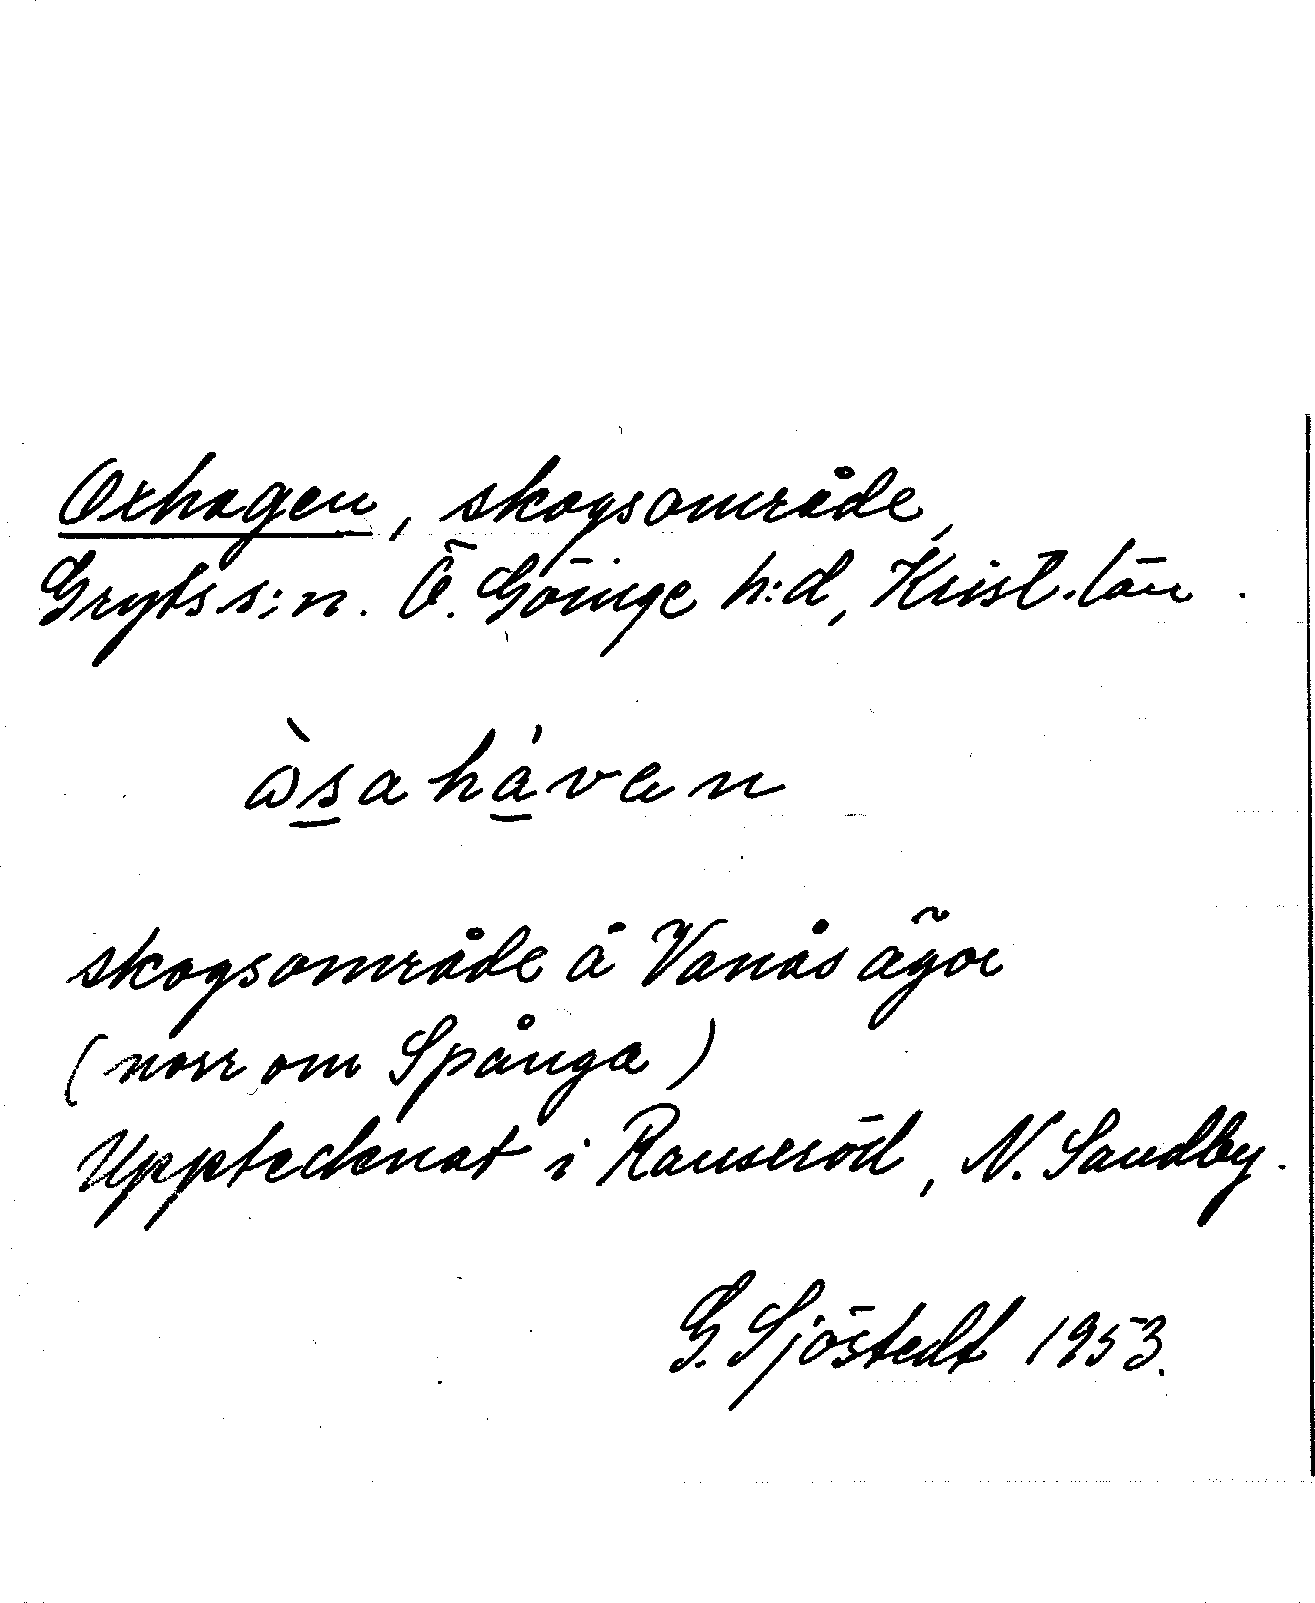 Oxhagen, skogsområde,
Gryts s:n. Ö. Göinge h:d, Krist. län.
òsahávan
skogsområde å Vanås ägor
(norr om Spånga)
Upptecknat i Ranseröd, N. Sandby.
G. Sjöstedt 1953.